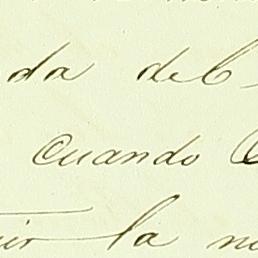 da del
cuando
la